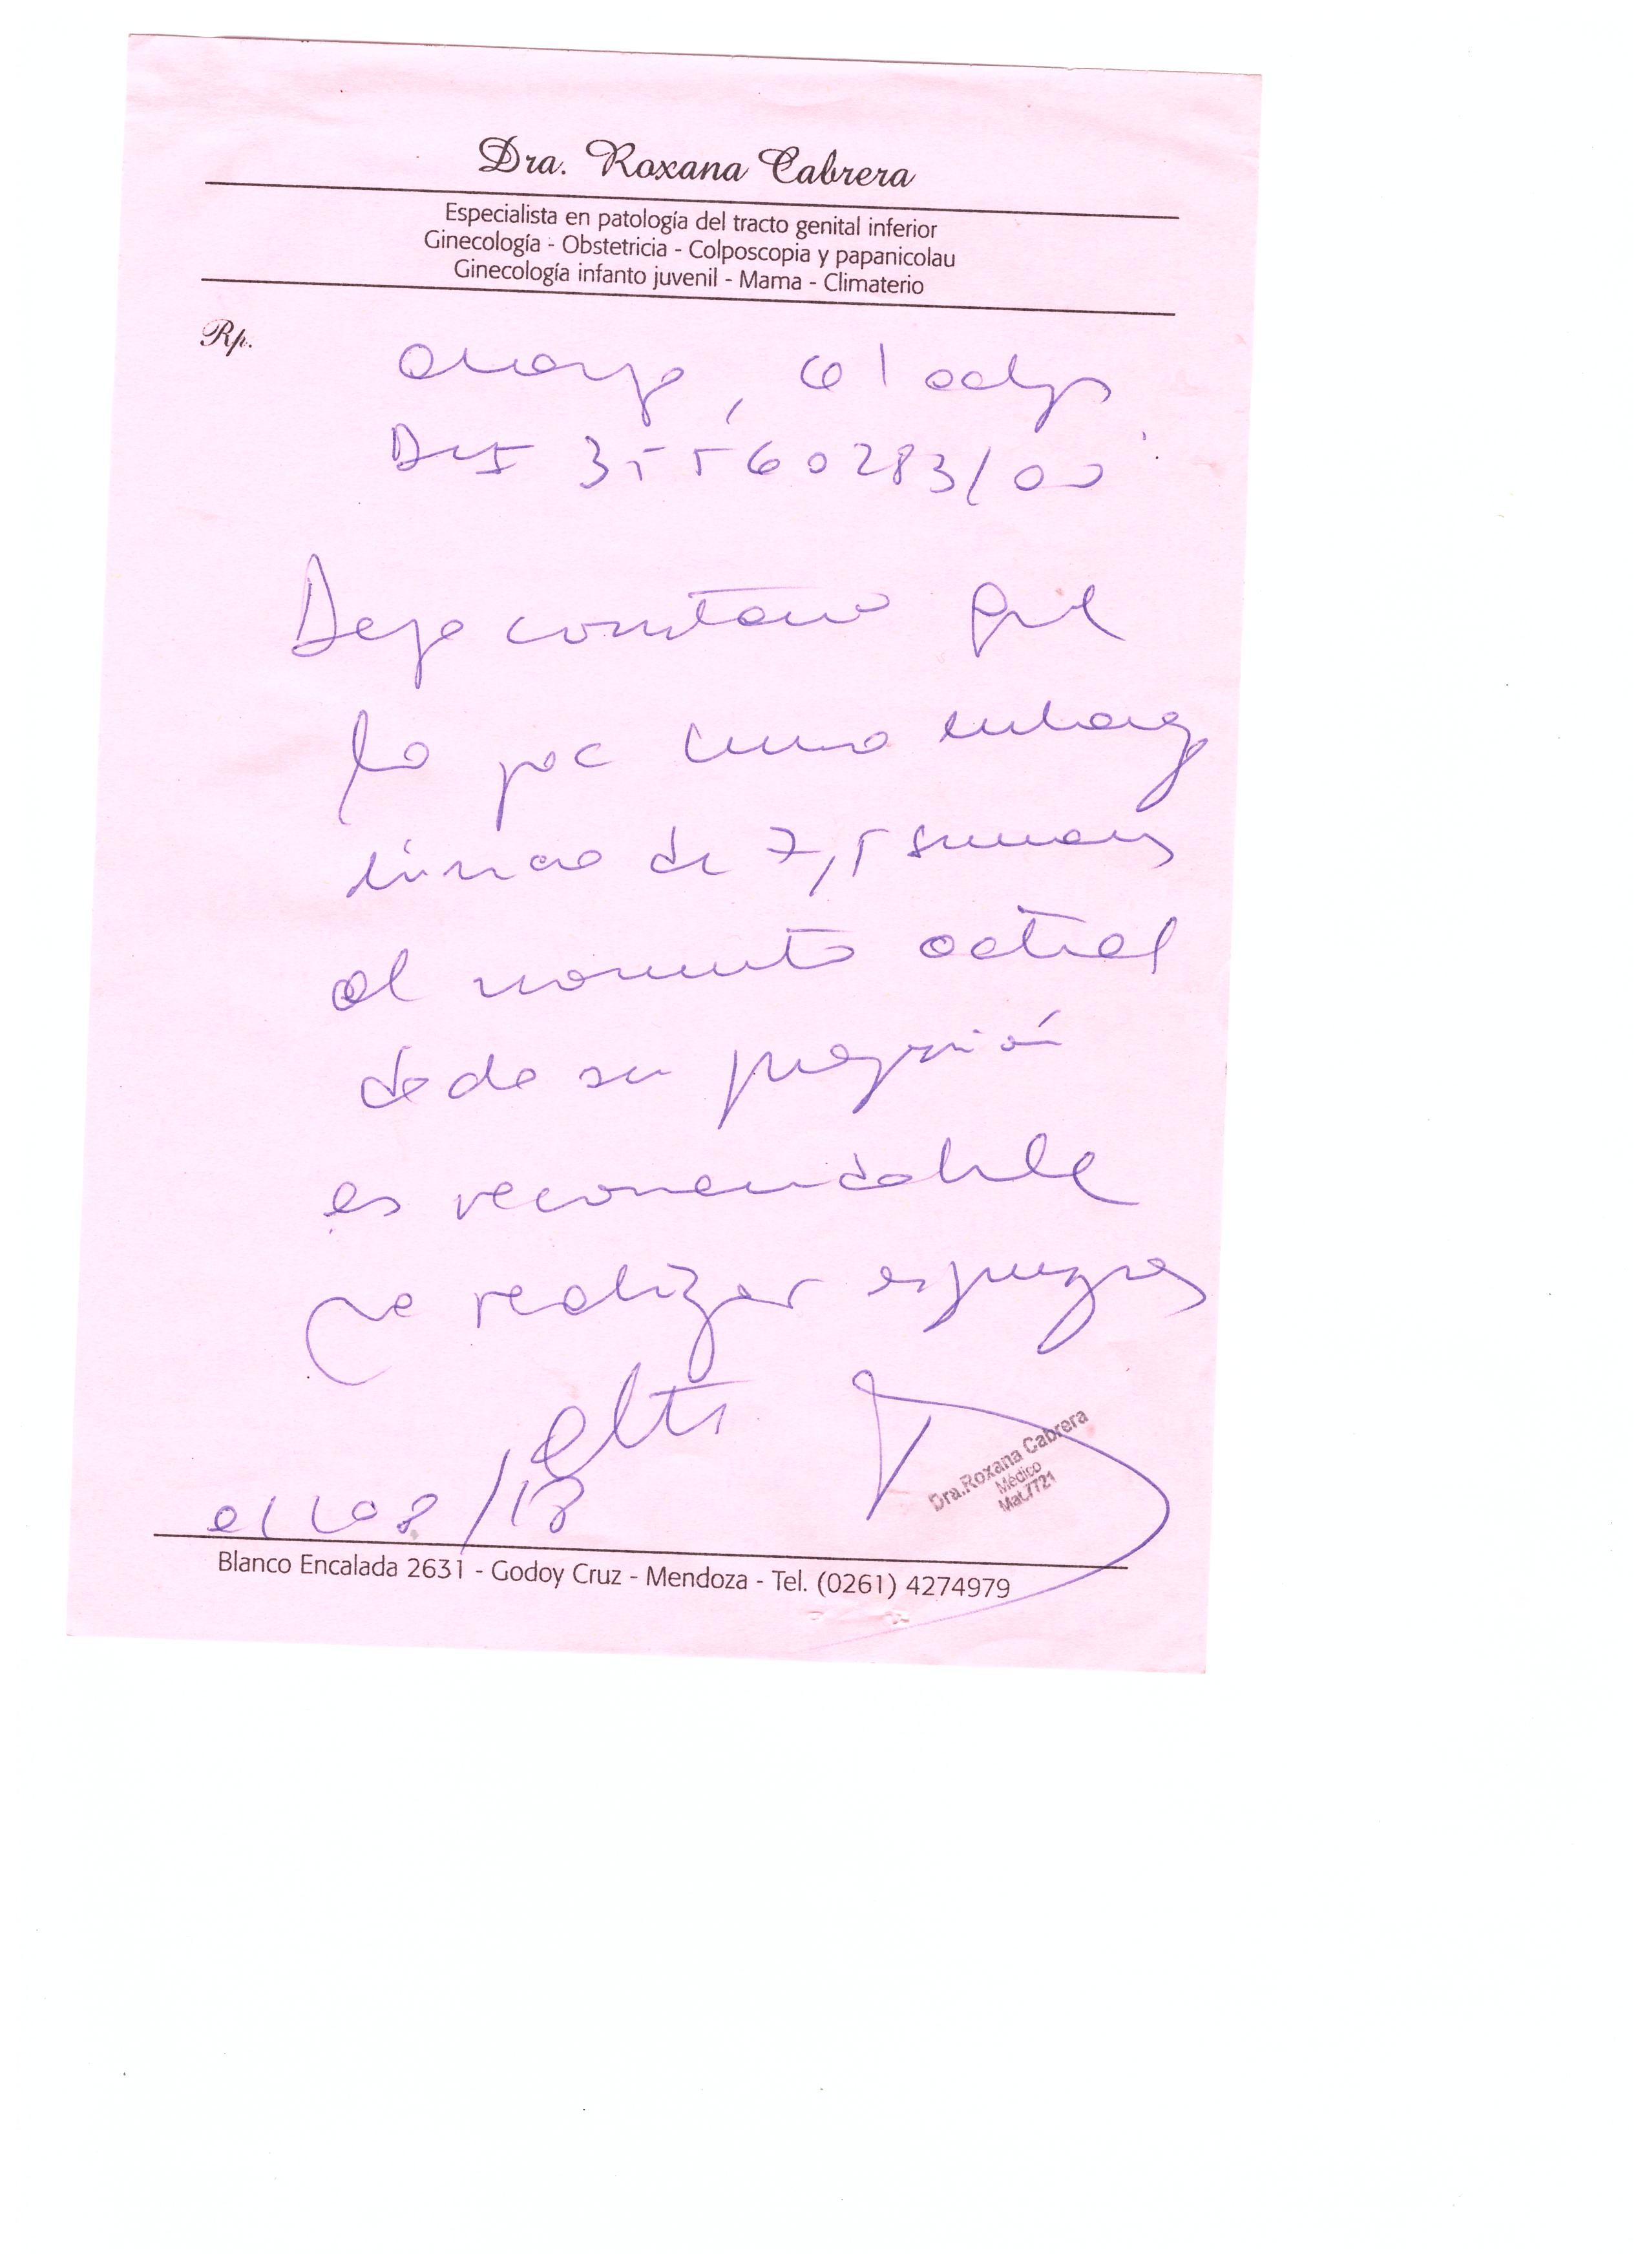 Dra. Roxana Cabrera
Especialista en patología del tracto genital inferior
Ginecología - Obstetricia - Colposcopia y papanicolau
Ginecología infanto juvenil - Mama - Climaterio
Rp.
Gladys
DNI 35560283/00
Dejo constancia que
la pac
de 7,5 semanas
al momento actual
dada su
es recomendable
realizar
/08/18
Dra.Roxana Cabrera
Médico
Mat.7721
Blanco Encalada 2631 - Godoy Cruz - Mendoza - Tel. (0261) 4274979